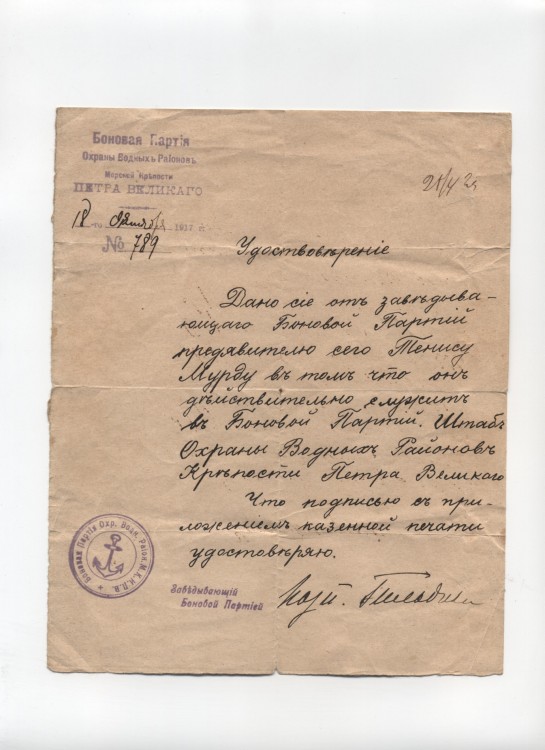 Боновая Партія
Охраны Водныхъ Раіоновъ
Морской Крѣпости
ПЕТРА ВЕЛИКАГО
18 -го Октября 1917 г.
№ 789
Удостовѣреніе
Дано сіе отъ завѣдыва-
ющаго Боновой Партій
предявителю сего Тенису
Мурду въ томъ что онъ
дѣйствительно служитъ
въ Боновой Партій. Штабъ
Охраны Водныхъ Районовъ
Крѣпости Петра Великаго
Что подписью съ при-
ложеніемъ казенной печати
удостовѣряю.
Завѣдывающій
Боновой Партіей
Боновая Партія Охр. Водн. Раіон. М.К.И.П.В.